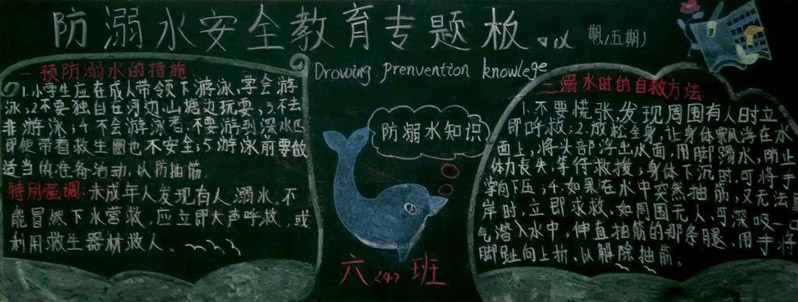 防溺水安全教育专题板
期(五期)
Drowing prenvention knowlege
一 预防溺水的措施
1.小学生应在成人带领下游泳,学会游
泳;2.不要独自在河边、山塘边玩耍;3.不去
非游泳;4.不会游泳者,不要游到深水区
即使带着救生圈也不安全;5.游泳前要做
适当的准备活动,以防抽筋
特别强调:未成年人发现有人溺水,不
能冒然下水营救,应立即大声呼救,或
利用救生器材救人。
防溺水知识
六〈4〉班
二.溺水时的自救方法
1.不要慌张,发现周围有人时立
即呼救;2.放松全身,让身体飘浮在水
面上,将头部浮出水面,用脚踢水,防止
体力丧失,等待救援;身体下沉时,可将手
掌向下压;4.如果在水中突然抽筋,又无法
岸时,立即求救,如周围无人,可深吸一口
气潜入水中,伸直抽筋的那条腿,用手将
脚趾向上扳,以解除抽筋。